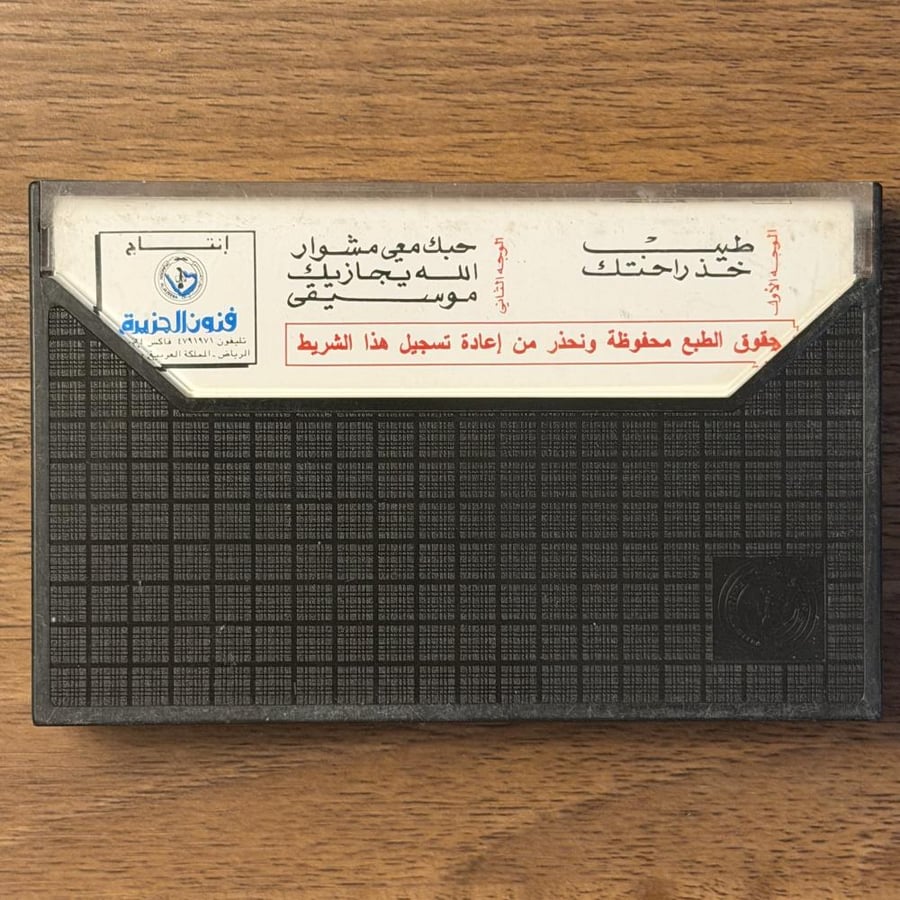 الوجه الأول
طيب
خذ راحتك
الوجه الثاني
حبك معي مشوار
الله يجازيك
موسيقى
حقوق الطبع محفوظة ونحذر من إعادة تسجيل هذا الشريط
إنتاج
فنون الجزيرة
تليفون ٤٧٩١٩٧١ فاكس
الرياض - المملكة العربية